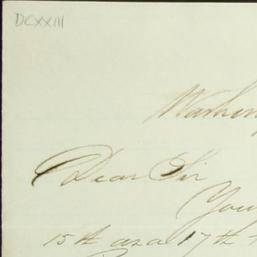 DCXXIII
Washin
Dear Sir
You
15th and 17th